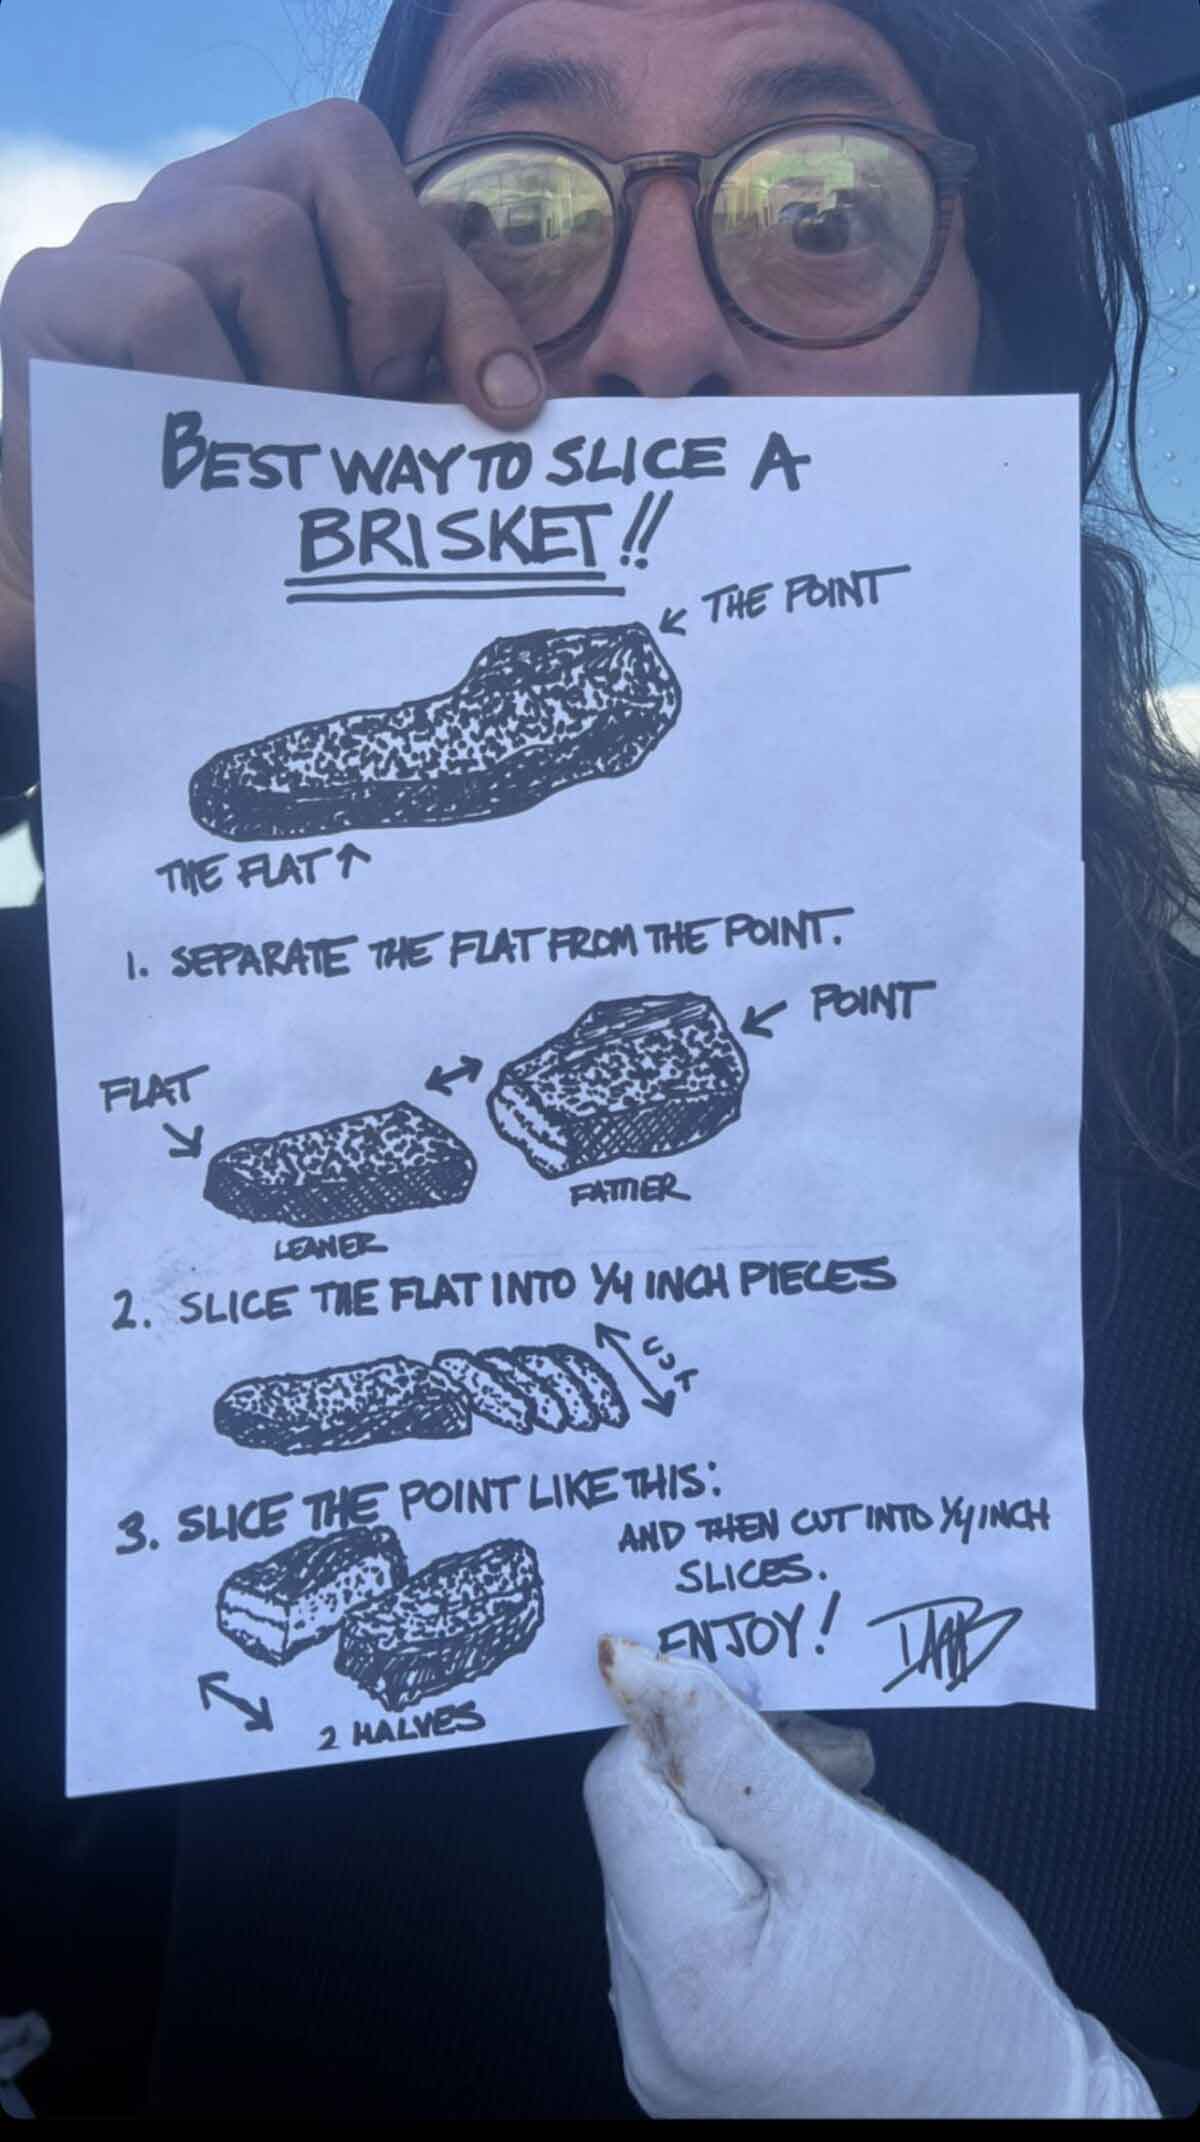 BEST WAY TO SLICE A
BRISKET!!
THE POINT
THE FLAT
1. SEPARATE THE FLAT FROM THE POINT.
POINT
FLAT
FATTIER
LEANER
2. SLICE THE FLAT INTO 1/4 INCH PIECES
CUT
3. SLICE THE POINT LIKE THIS:
AND THEN CUT INTO 1/4 INCH
SLICES.
ENJOY!
2 HALVES